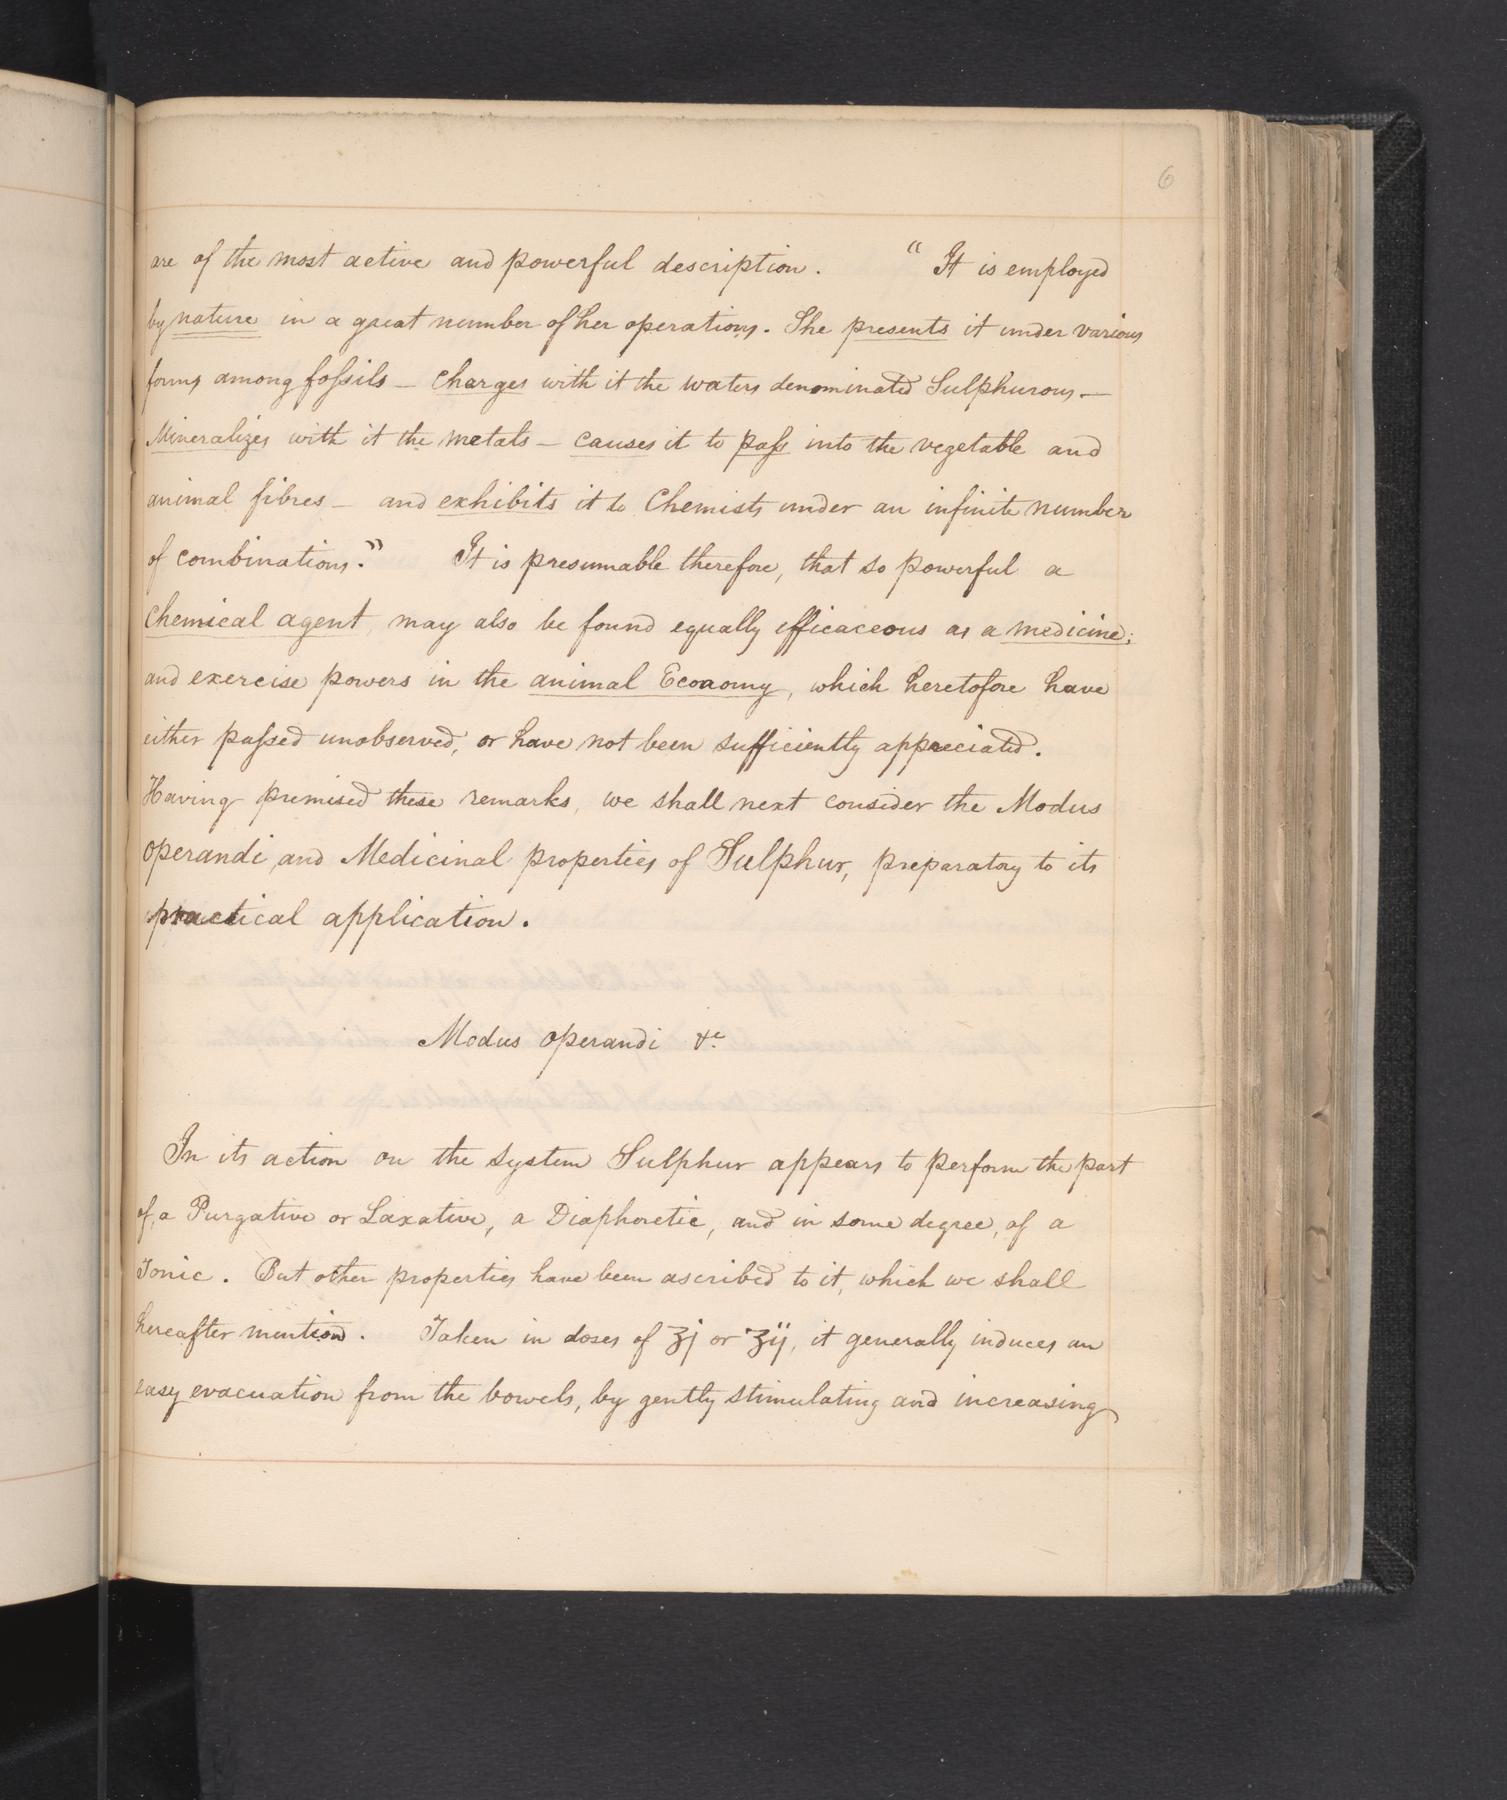 6
are of the most active and powerful description. “ It is employed
by nature in a great number of her operations. She presents it under various
forms among fossils — charges with it the waters denominated Sulphurous —
Mineralizes with it the metals — causes it to pass into the vegetable and
animal fibres — and exhibits it to Chemists under an infinite number
of combinations.” It is presumable therefore, that so powerful a
Chemical agent, may also be found equally efficaceous as a medicine;
and exercise powers in the animal Economy, which heretofore have
either passed unobserved, or have not been sufficiently appreciated.
Having premised these remarks, we shall next consider the Modus
operandi, and Medicinal properties of Sulphur, preparatory to its
practical application.
Modus operandi &c
In its action on the system Sulphur appears to perform the part
of, a Purgative or Laxative, a Diaphoretic, and in some degree, of a
Tonic. But other properties have been ascribed to it, which we shall
hereafter mention. Taken in doses of ʒj or ʒij, it generally induces an
easy evacuation from the bowels, by gently stimulating and increasing